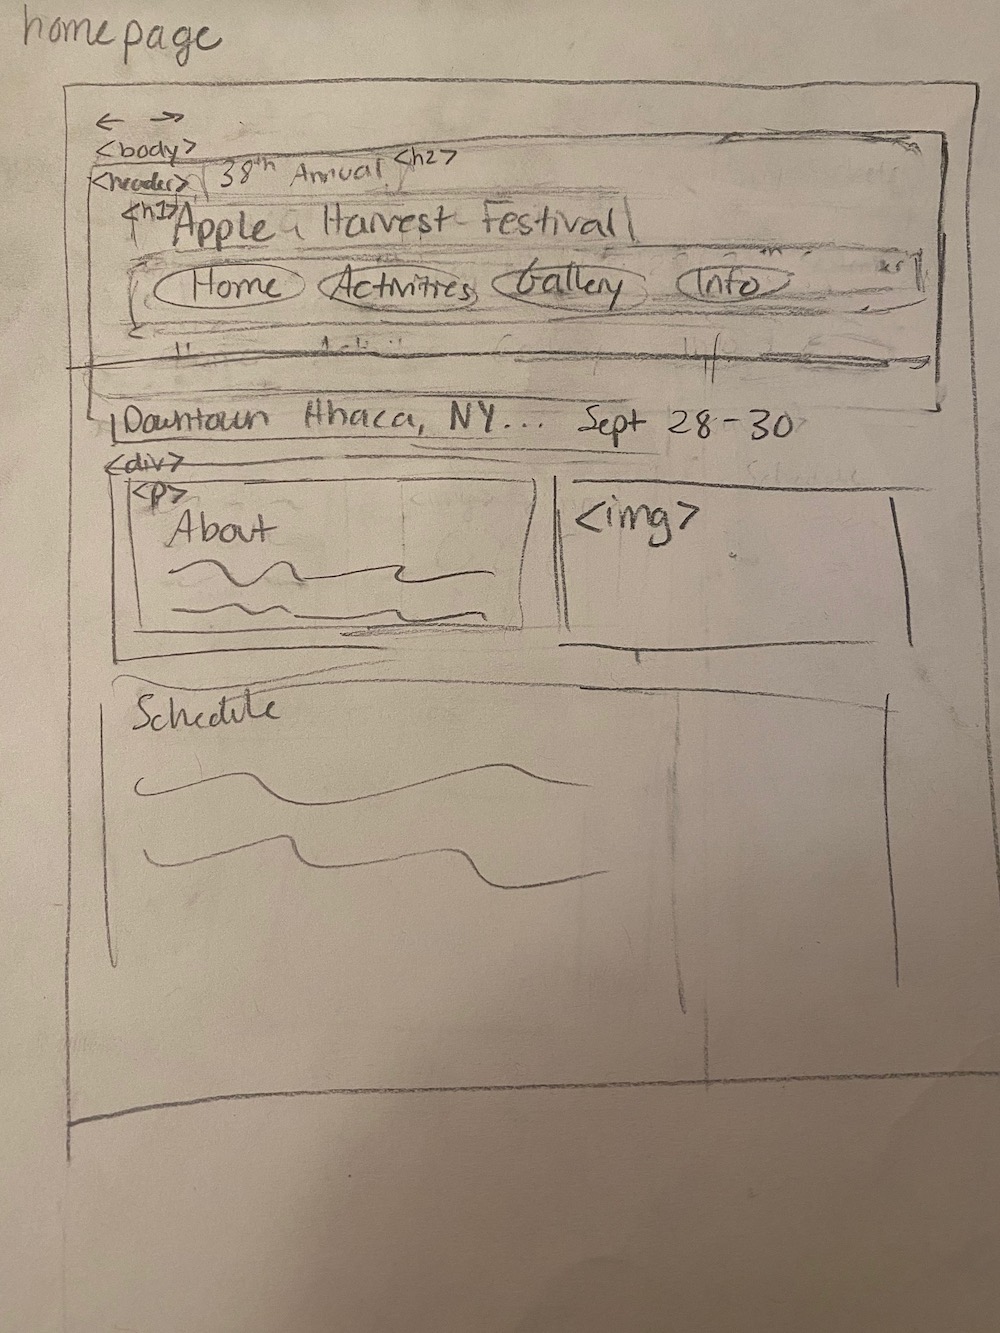 homepage
← →
<body>
<header> 38th Annual <h2>
<h1> Apple Harvest Festival
Home Activities Gallery Info
Downtown Ithaca, NY... Sept 28-30
<div>
<p> <img>
About
Schedule